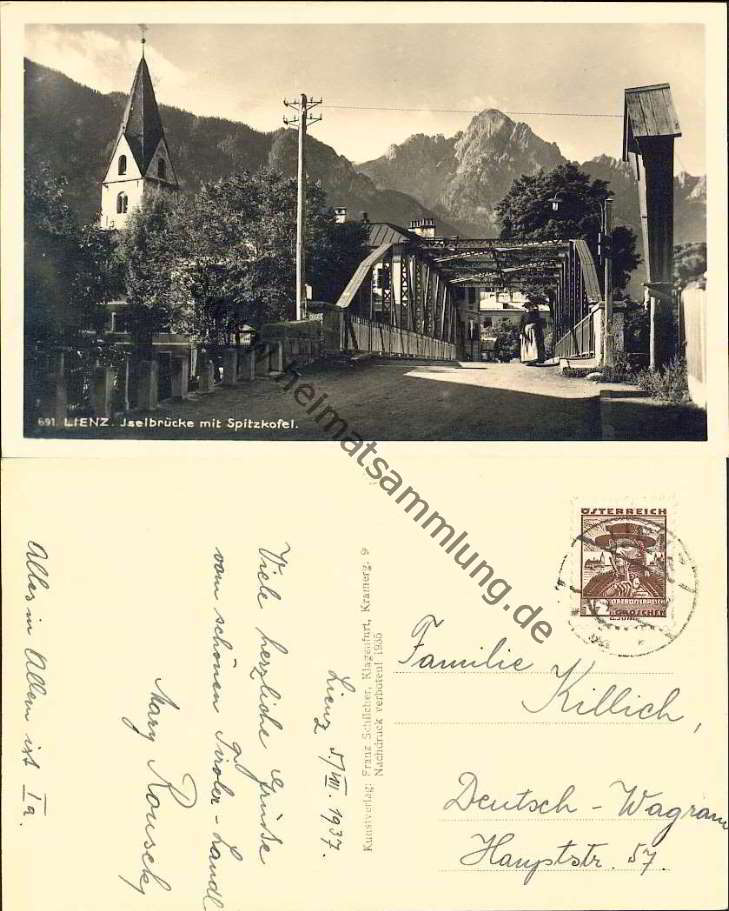 691. LIENZ. Jselbrücke mit Spitzkofel.
heimatsammlung.de
Lienz 5./VIII. 1937.
Viele herzliche Grüße
vom schönen Tiroler-Landl
Mary
Alles in Allem ist Ia.
Kunstverlag: Franz Schilcher, Klagenfurt, Kramerg. 9
Nachdruck verboten! 1935
ÖSTERREICH
GROSCHEN
Familie Killich,
Deutsch-Wagram
Hauptstr. 57.